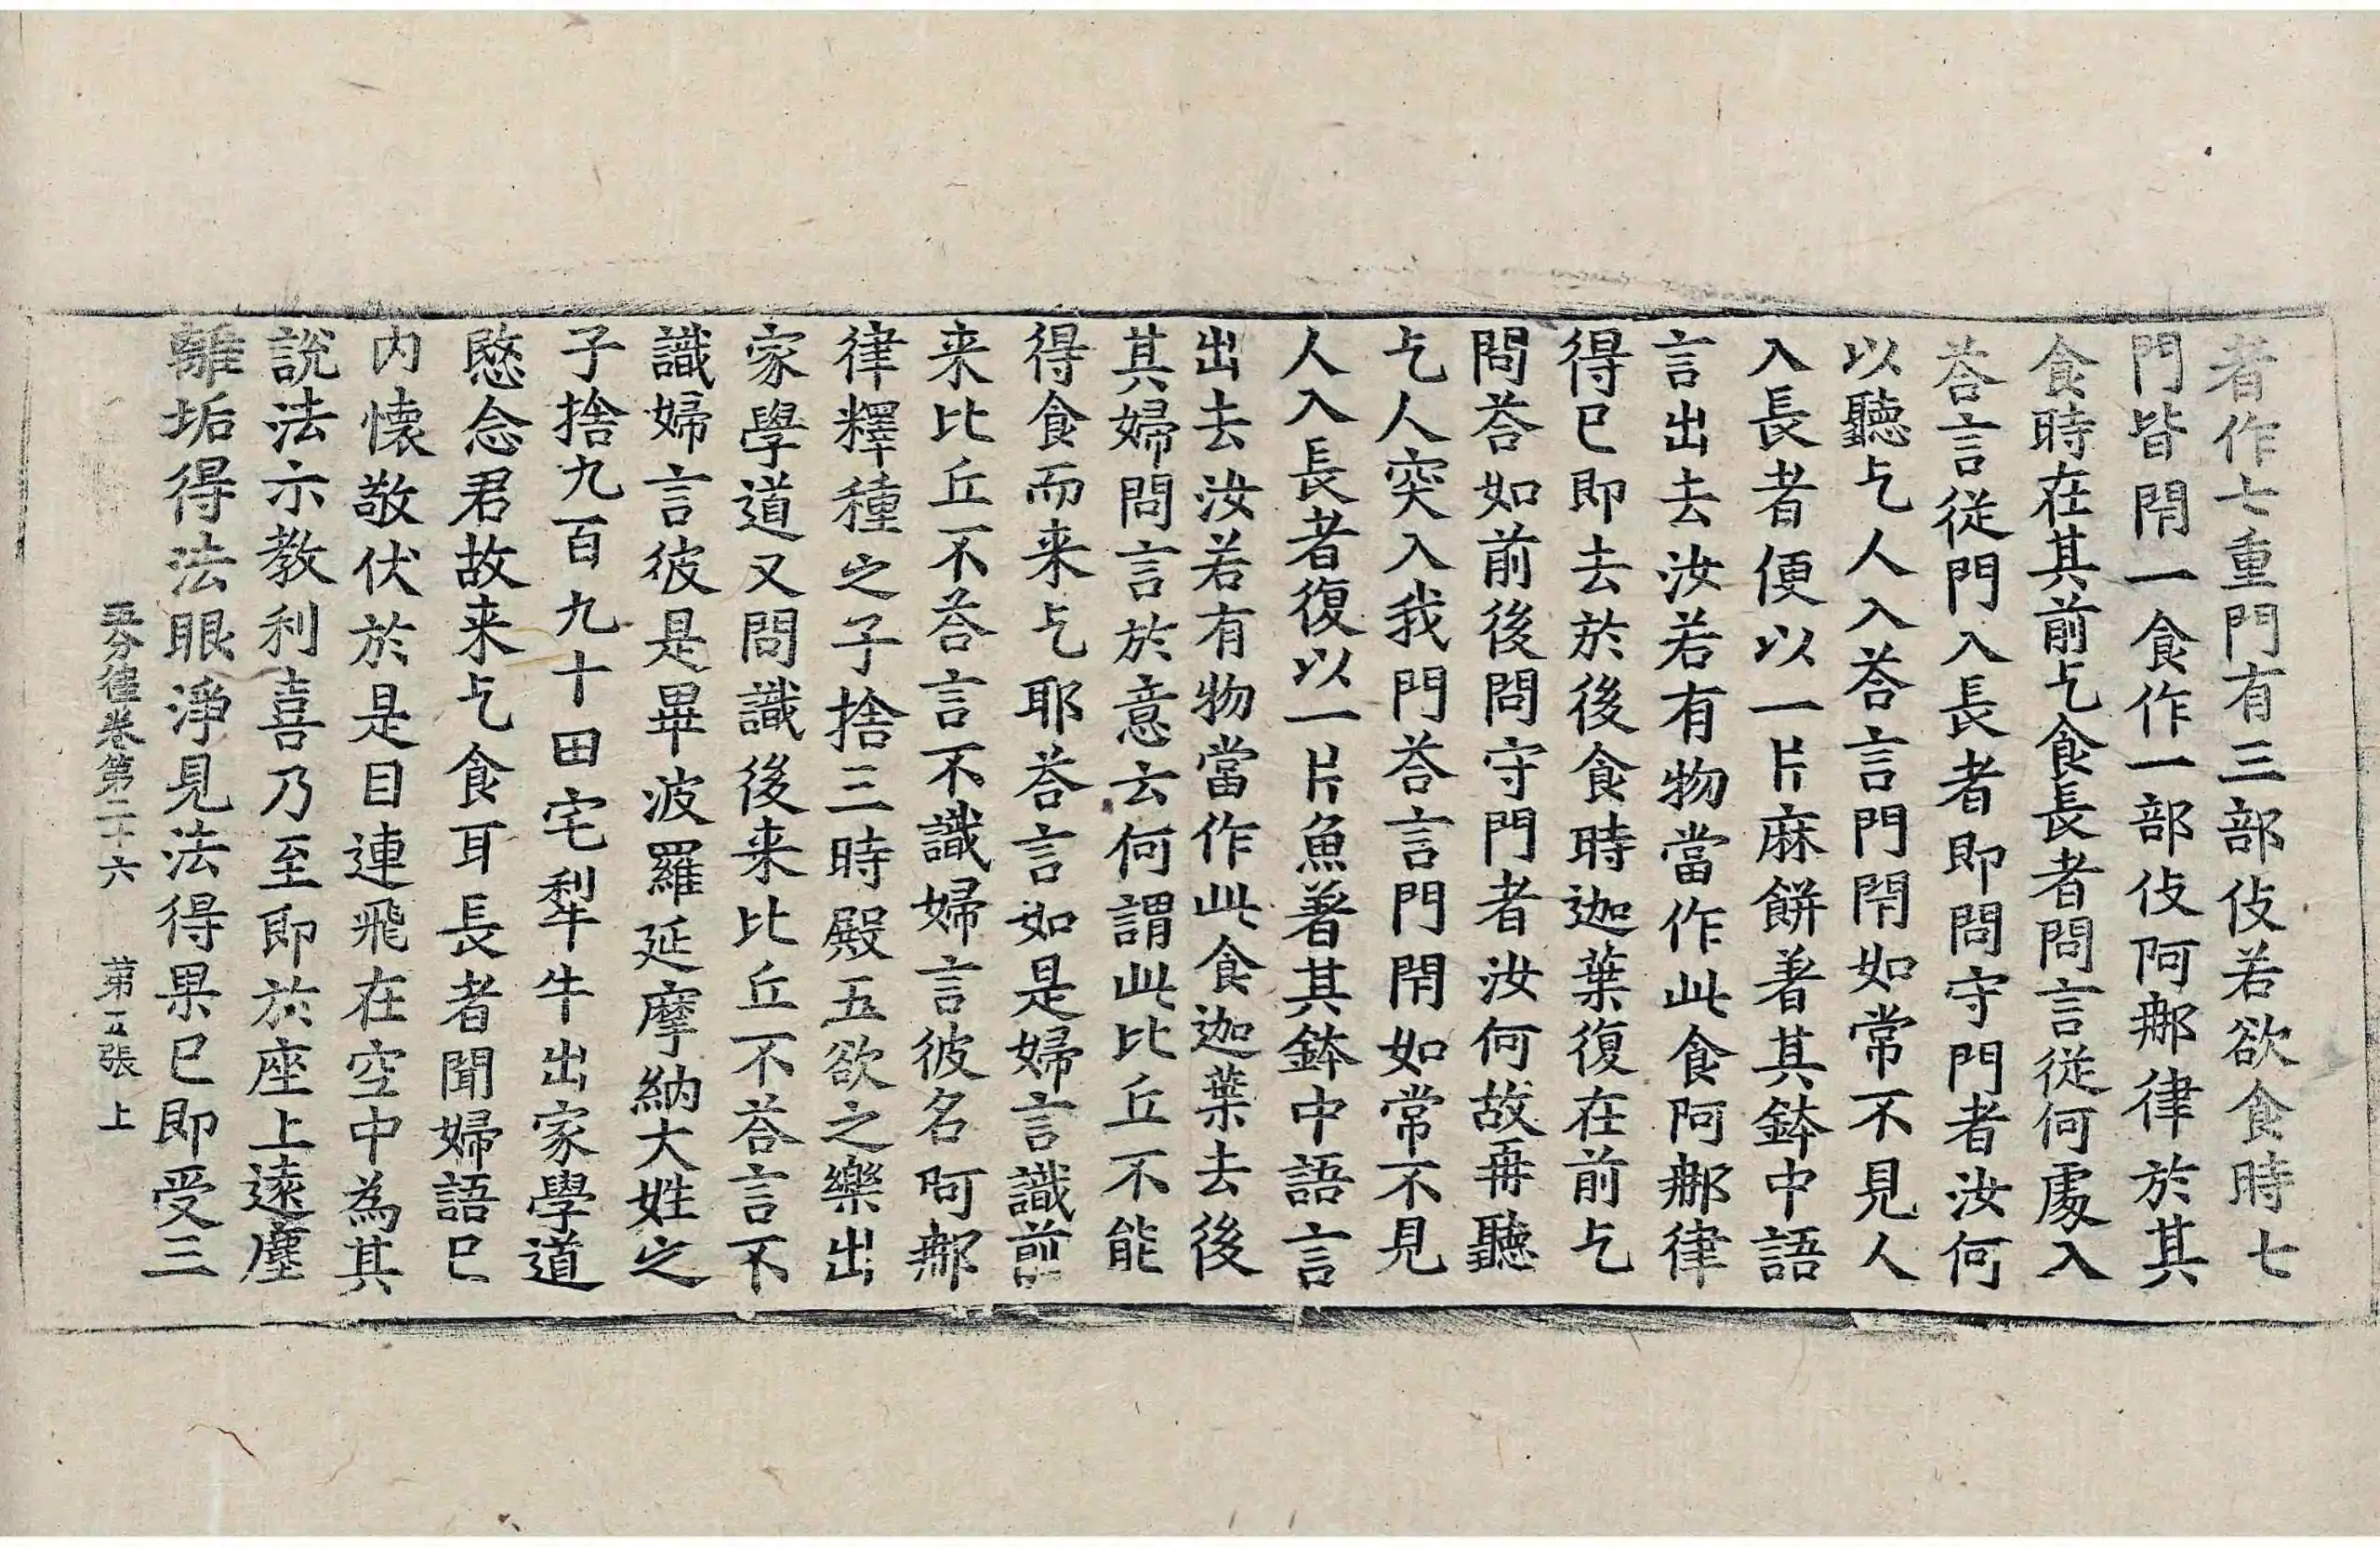 者作七重門有三部伎若欲食時七
門皆閇一食作一部伎阿𨚗律於其
食時在其前乞食長者問言從何處入
荅言從門入長者即問守門者汝何
以聽乞人入荅言門閇如常不見人
入長者便以一片麻餅著其鉢中語
言出去汝若有物當作此食阿𨚗律
得已即去於後食時迦葉復在前乞
問荅如前後問守門者汝何故再聽
乞人突入我門荅言門閇如常不見
人入長者復以一片魚著其鉢中語言
出去汝若有物當作此食迦葉去後
其婦問言於意云何謂此比丘不能
得食而来乞耶荅言如是婦言識前
来比丘不荅言不識婦言彼名阿𨚗
律釋種之子捨三時殿五欲之樂出
家學道又問識後来比丘不荅言不
識婦言彼是畢波羅延摩納大姓之
子捨九百九十田宅犁牛出家學道
愍念君故来乞食耳長者聞婦語已
内懐敬伏於是目連飛在空中為其
說法示教利喜乃至即於座上遠塵
離垢得法眼淨見法得果已即受三
五分律卷第二十六 第五張 上